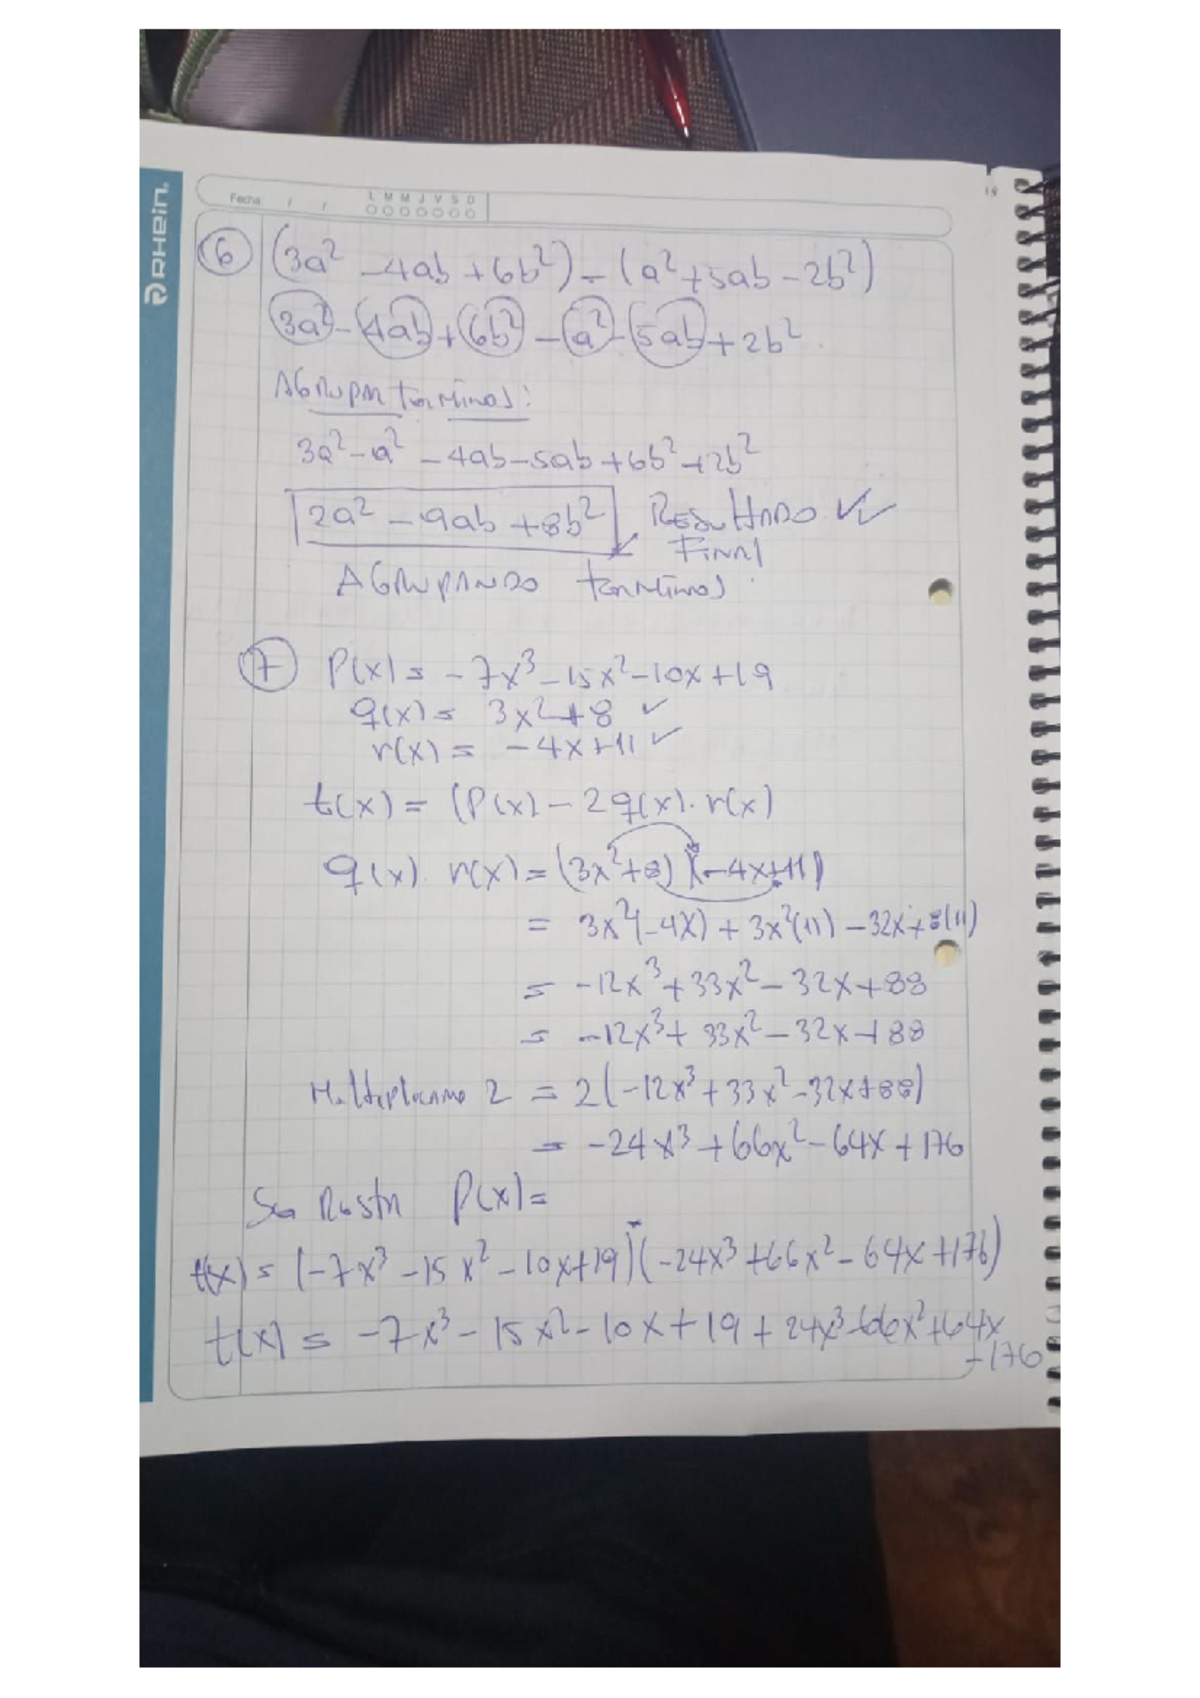 RHein
Fecha: / /
L M M J V S D
18
6 (3a² - 4ab + 6b²) - (a² + 5ab - 2b²)
3a² - 4ab + 6b² - a² - 5ab + 2b²
AGRUPAR terminos:
3a² - a² - 4ab - 5ab + 6b² + 2b²
2a² - 9ab + 8b² RESULTADO ✓✓
FINAL
AGRUPANDO terminos
7 P(x) = -7x³ - 15x² - 10x + 19
q(x) = 3x² + 8 ✓
r(x) = -4x + 11 ✓
t(x) = (P(x) - 2q(x) · r(x)
q(x) · r(x) = (3x² + 8)(-4x + 11)
= 3x²(-4x) + 3x²(11) - 32x + 8(11)
= -12x³ + 33x² - 32x + 88
= -12x³ + 33x² - 32x + 88
Multiplicamo 2 = 2(-12x³ + 33x² - 32x + 88)
= -24x³ + 66x² - 64x + 176
Se Resta P(x) =
t(x) = (-7x³ - 15x² - 10x + 19) - (-24x³ + 66x² - 64x + 176)
t(x) = -7x³ - 15x² - 10x + 19 + 24x³ - 66x² + 64x
- 176